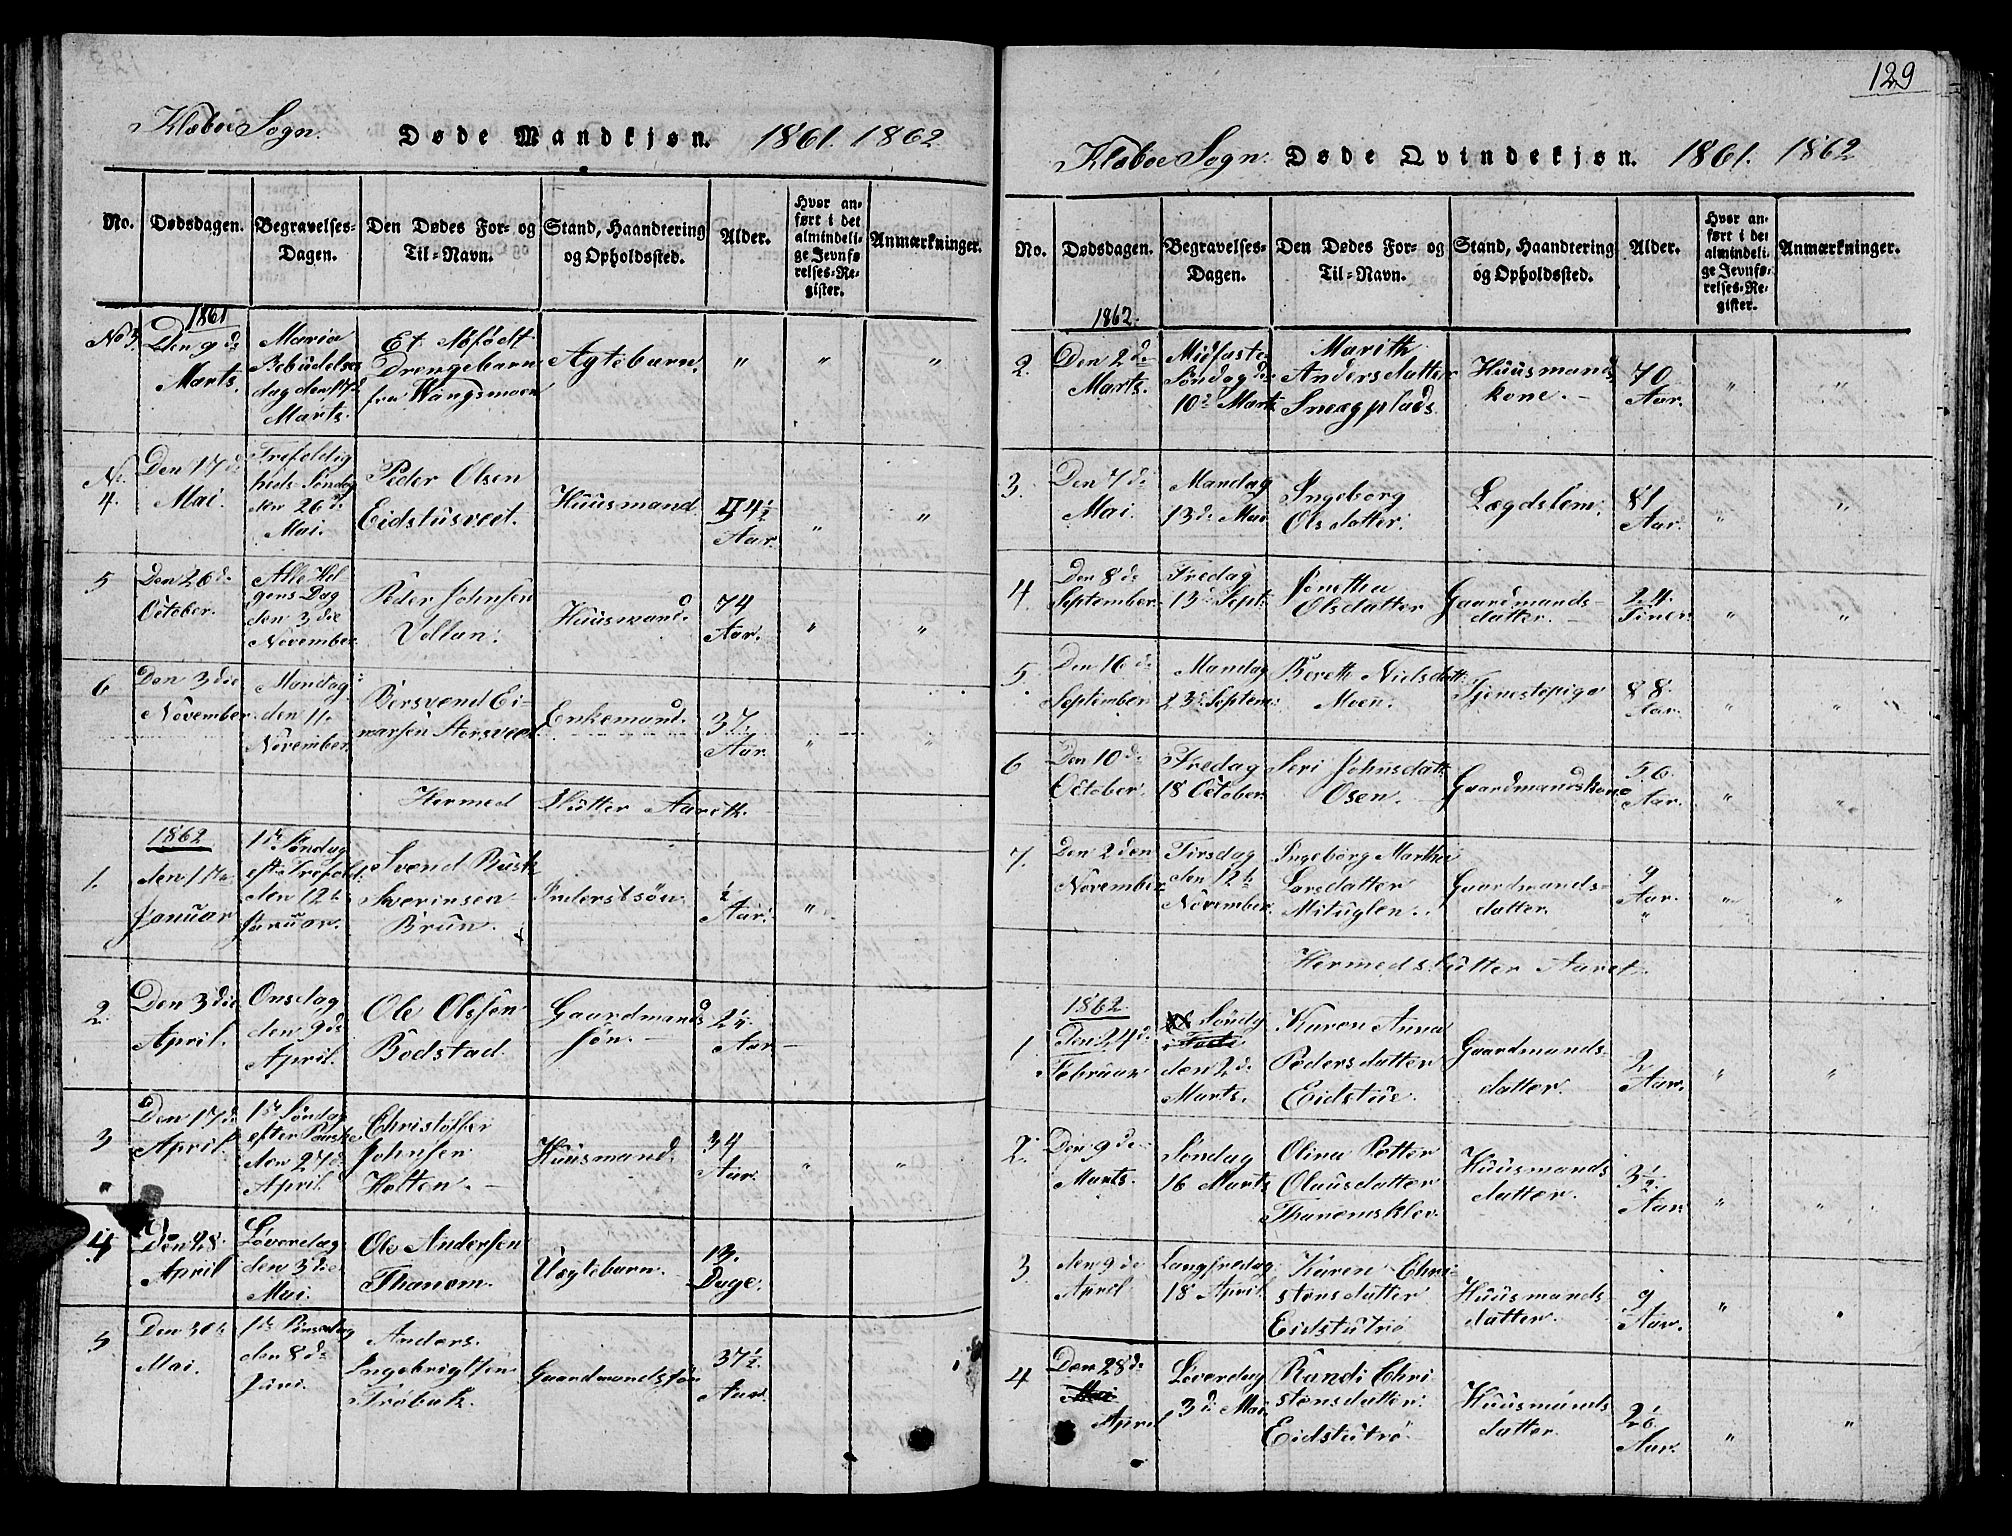 129
Klæboe Sogn. Døde Mandkjøn. 1861. 1862
No.
Dødsdagen.
Begravelses-
Dagen.
Den Dødes For- og
Til-Navn.
Stand, Haandtering
og Opholdssted.
Alder.
Hvor an-
ført i det
almindeli-
ge Jevnfø-
relses-Re-
gister.
Anmærkninger.
1861
No 3.
Den 9de
Marts.
Maria
Bebudelses
dag den 17de
Marts.
Et
Drengebarn
fra Wangsmoen
Ægtebarn.
" " "
No.
4.
Den 17de
Mai.
Trefoldig
heds Søndag
den 26de
Mai.
Peder Olsen
Eidstusved.
Huusmand
4½
Aar.
" "
5
Den 26de
October.
Alle Hel
gens Dag
den 3die
November
Peder Johnsen
Ullan.
Huusmand.
74
Aar.
" "
6
Den 3die
November
Mandag
den 11.
November.
Bersvend Ei-
narsen
Enkemand.
37.
Aar.
" "
Hermed Slutter Aareth.
1862
1.
den 17de
Januar
1ste Søndag
eft. Trefold.
den 12te
Januar.
Svend Busk
Sverinsen
Brun.
Inderstsøn
½
Aar.
"
2.
Den 3die
April.
Onsdag
den 9de
April.
Ole Olsen
Bodstad.
Gaardmands
søn.
2¼
Aar
3
Den 17de
April.
1ste Søndag
efter Paaske
den 27de
April.
Christoffer
Johnsen
Holten.
Huusmand.
34
Aar.
" "
4
Den 28
April
Løverdag
den 3die
Mai.
Ole Andersen
Thanem.
Uægtebarn.
13.
Dage.
5
Den 30te
Mai.
1ste Pinsedag
den 8de
Juni.
Anders
Ingebrigtsen
Trøbak.
Gaardmandssøn
37½
Aar.
Klæboe Sogn. Døde Qvindekjøn. 1861. 1862
No.
Dødsdagen.
Begravelses-
Dagen.
Den Dødes For- og
Til-Navn.
Stand, Haandtering
og Opholdssted.
Alder.
Hvor an-
ført i det
almindeli-
ge Jevnfø-
relses-Re-
gister.
Anmærkninger.
1862.
2.
Den 2de
Marts.
Midfaste
Søndag den
10de Marts
Marith
Andersdatter
Sneegplads.
Huusmands
kone.
70
Aar.
" "
3.
Den 7de
Mai.
Mandag
13de Mai.
Ingeborg
Olsdatter.
Lægdslem.
81
Aar.
" "
4.
Den 8de
September.
Fredag
13de Septr.
Jonetha
Olsdatter
Gaardmands-
datter.
24
Timer.
" "
5.
Den 16de
September
Mandag
23de Septem:
Bereth Nielsdatt:
Moen.
Tjenestepige
88.
Aar.
" "
6
Den 10de
October.
Fredag
18 October.
Seri Johnsdatt:
Osen.
Gaardmandskone
56.
Aar.
" "
7.
Den 2den
November
Tirsdag
den 12te
November.
Ingeborg Martha
Larsdatter
Mituglen.
Gaardmands-
datter.
9
Aar.
" "
Hermed slutter Aaret.
1862.
1.
Den 24de
Februar
Søndg
i Faste
den 2de
Marts.
Karen Anna
Pedersdatter
Eidstue.
Gaardmands-
datter.
2
Aar.
" "
2.
Den 9de
Marts.
Søndag
16 Marts
Olina Petter
Olausdatter
Thanemsklev.
Huusmands
datter.
3½.
Aar.
" "
3.
den 9de
April
Langfredag
18 April.
Karen Chri-
stensdatter
Eidstutrø
Huusmands-
datter.
9
Aar.
" "
4
Den 28de
Mai
April
Løverdag
3de Mai.
Randi Chri
stensdatter.
Eidstutrø.
Huusmands
datter.
2⅙.
Aar.
" "